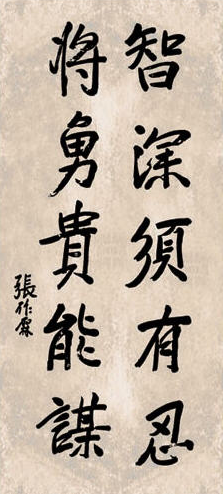 智深須有忍
將勇貴能謀
張作霖